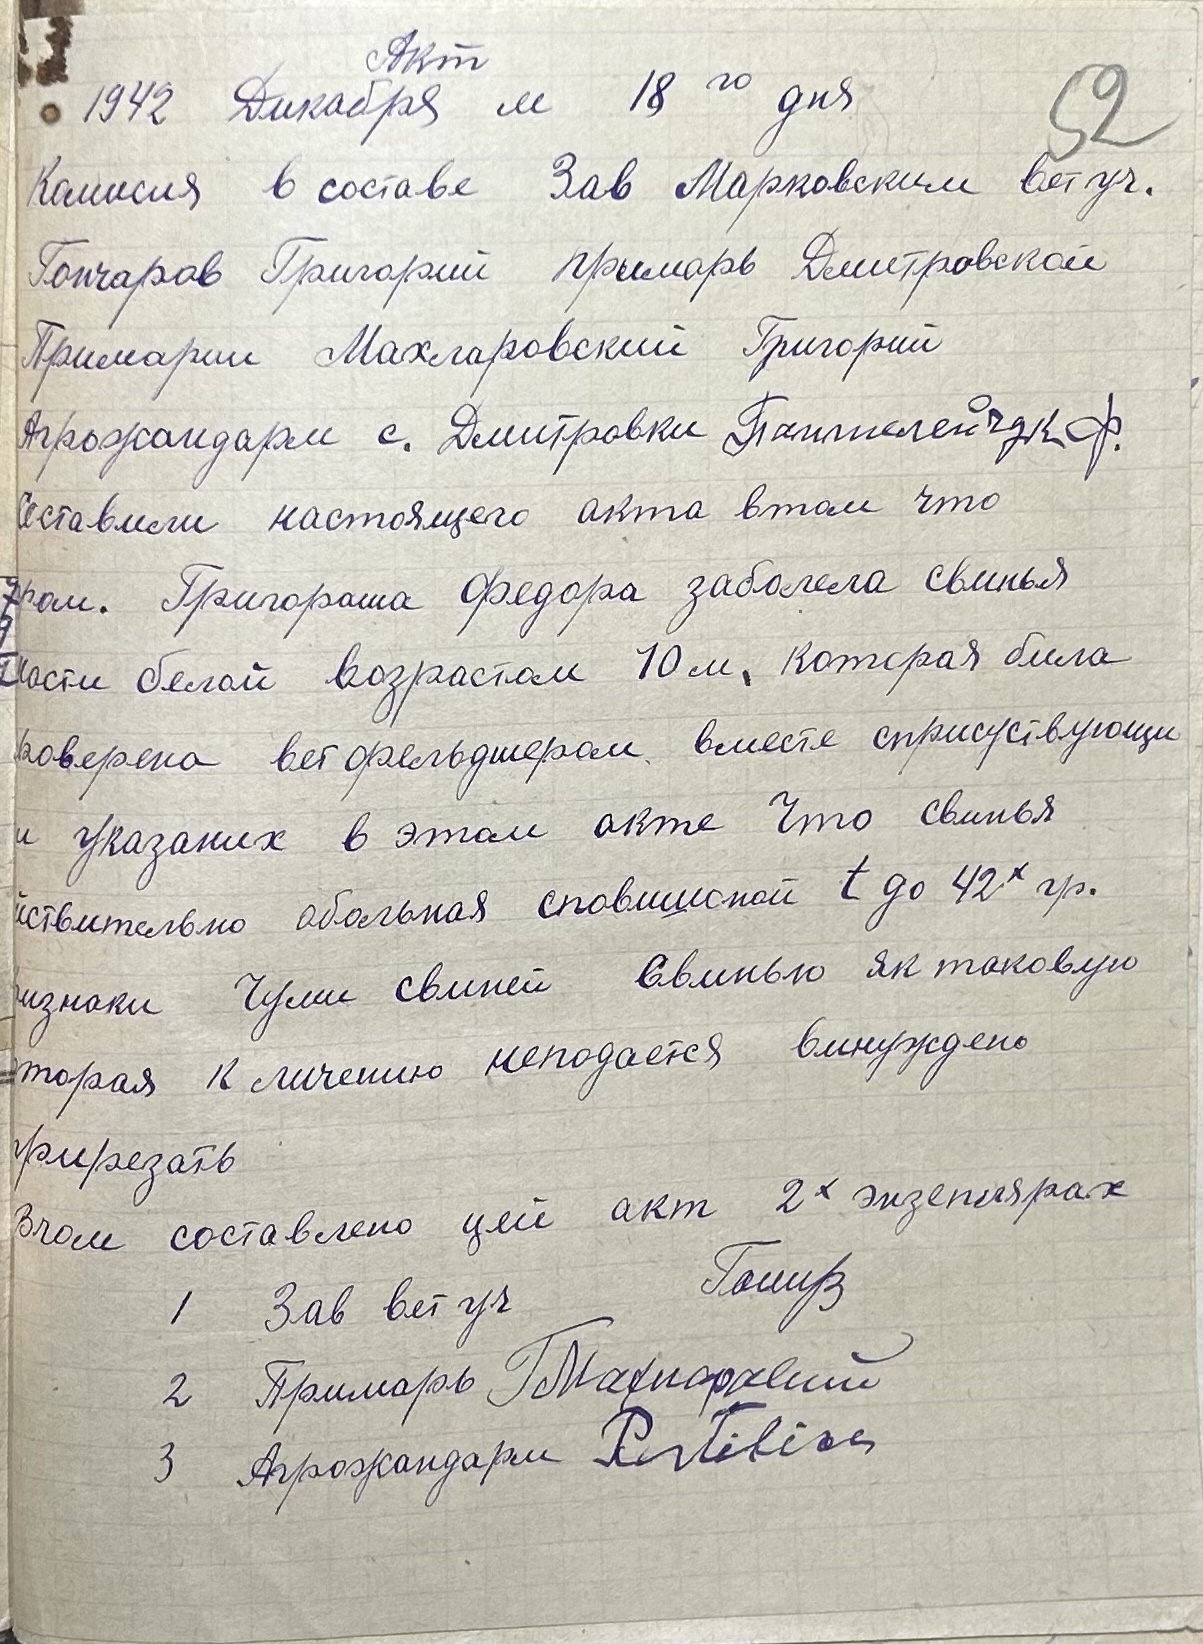 Акт
1942 Дикабря м 18 го дня
52
Комисия в составе Зав Марковским вет уч.
Гончаров Григорий примарь Дмитровской
Примарии Махларовский Григорий
Агрожандарм с. Дмитровки Ф.
Составили настоящего акта втом что
гром. Григораша Федора заболела свинья
масти белой возрастом 10 м. которая била
роверена ветфельдшером вместе сприсуствующи
и указаних в этом акте Что свинья
йствительно обольная сповишоной t до 42х гр.
ризнаки Чуми свиней Свинью як таковую
оторая к личению неподается винуждено
прирезать
Вчом составлено цей акт 2х экземпярах
1 Зав вет уч
2 Примарь
3 Агрожандарм